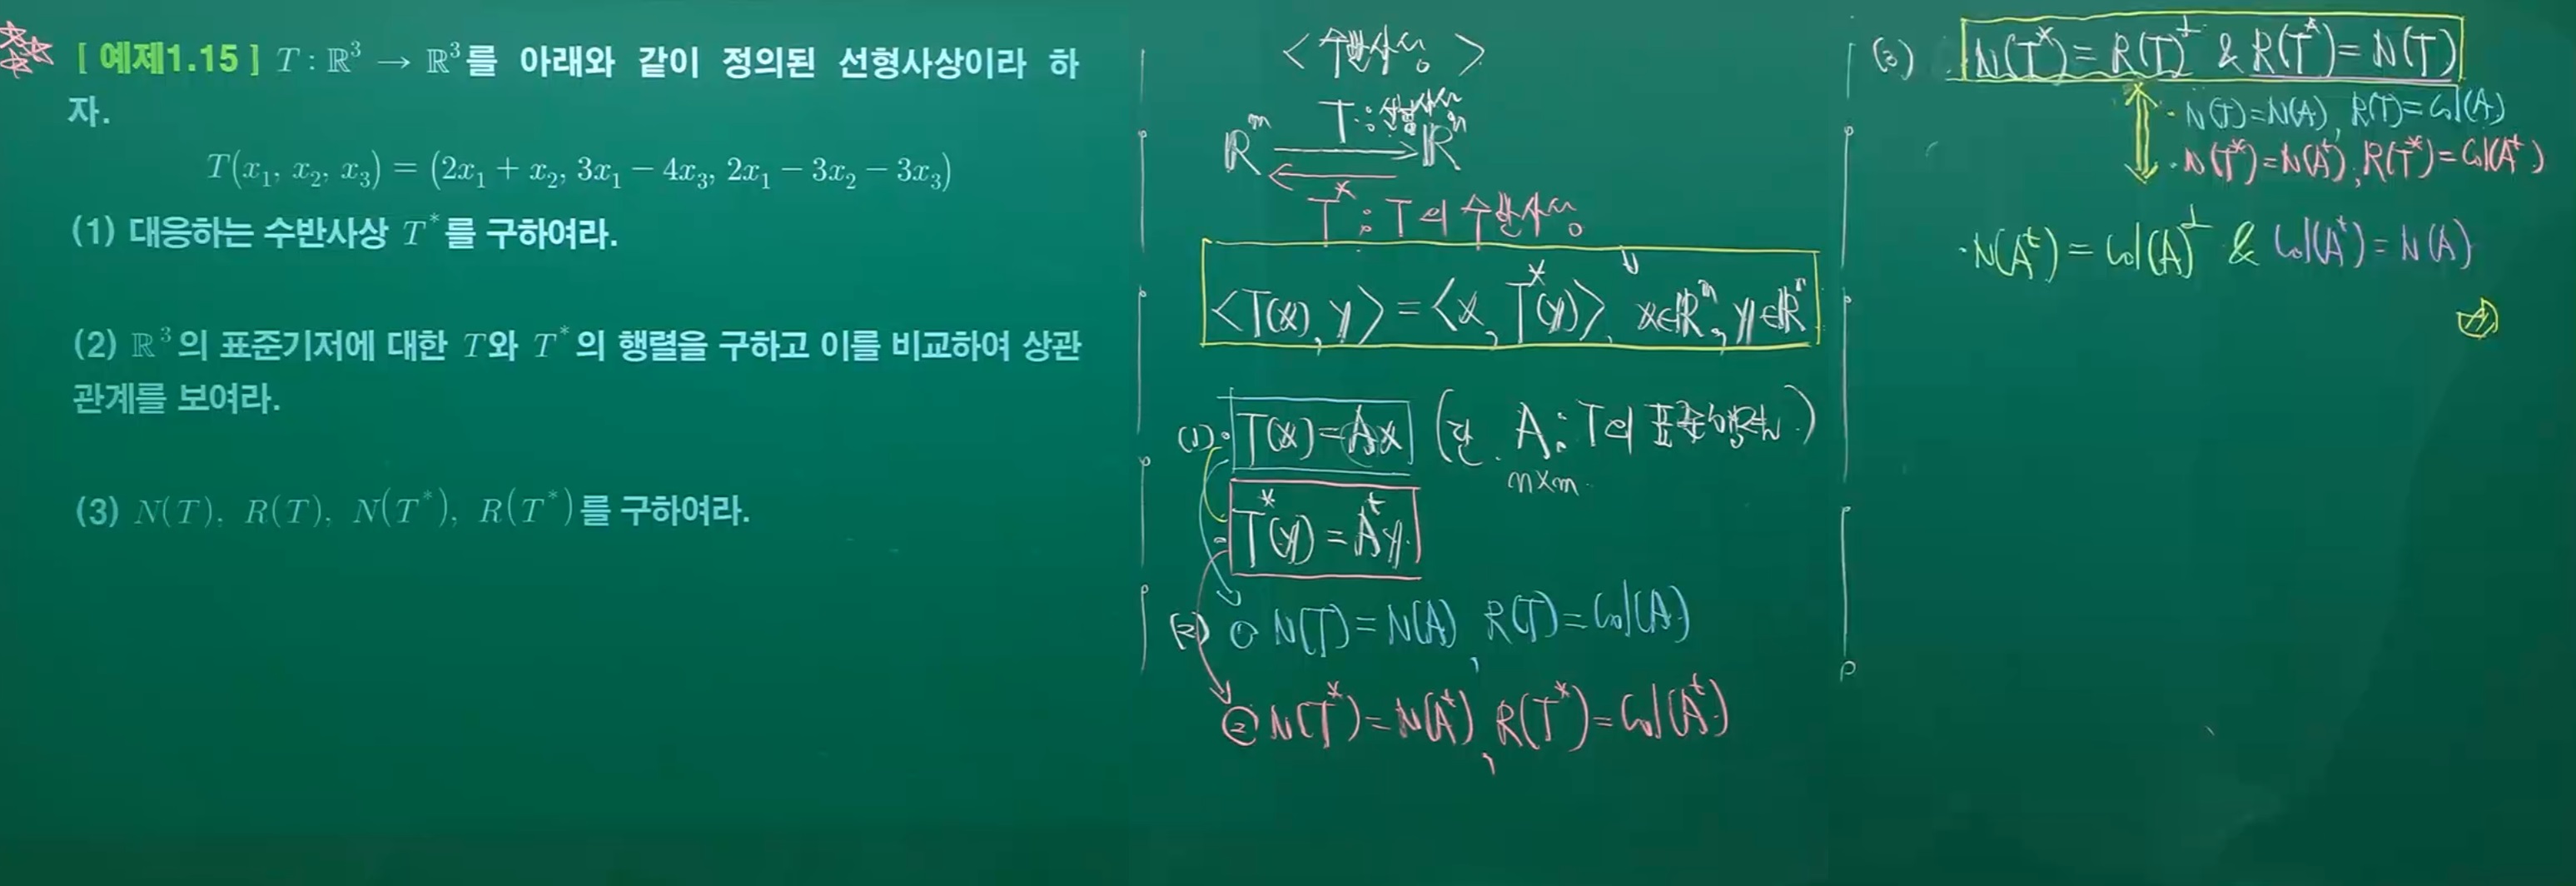 [ 예제1.15 ] T : ℝ³ → ℝ³를 아래와 같이 정의된 선형사상이라 하
자.
T(x₁, x₂, x₃) = (2x₁ + x₂, 3x₁ − 4x₃, 2x₁ − 3x₂ − 3x₃)
(1) 대응하는 수반사상 T*를 구하여라.
(2) ℝ³의 표준기저에 대한 T와 T*의 행렬을 구하고 이를 비교하여 상관
관계를 보여라.
(3) N(T), R(T), N(T*), R(T*)를 구하여라.
< 수반사상 >
T : 선형사상
ℝᵐ ℝⁿ
T* : T의 수반사상
<T(x), y> = <x, T*(y)>, x∈ℝᵐ, y∈ℝⁿ
(1) · T(x) = Ax (단. A : T의 표준행렬)
n×m
· T*(y) = Aᵗy.
(2) ① N(T) = N(A), R(T) = Col(A)
② N(T*) = N(Aᵗ), R(T*) = Col(Aᵗ)
(3) N(T*) = R(T)^⊥ & R(T*) = N(T)
· N(T) = N(A), R(T) = Col(A)
· N(T*) = N(Aᵗ), R(T*) = Col(Aᵗ)
· N(Aᵗ) = Col(A)^⊥ & Col(Aᵗ) = N(A)